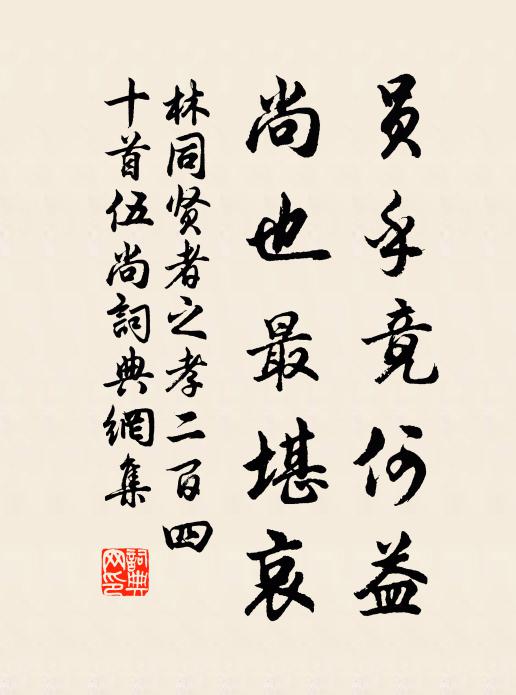 员乎竟何益
尚也最堪哀
林同贤者之孝二百四
十首伍尚詞典網集
詞典网印